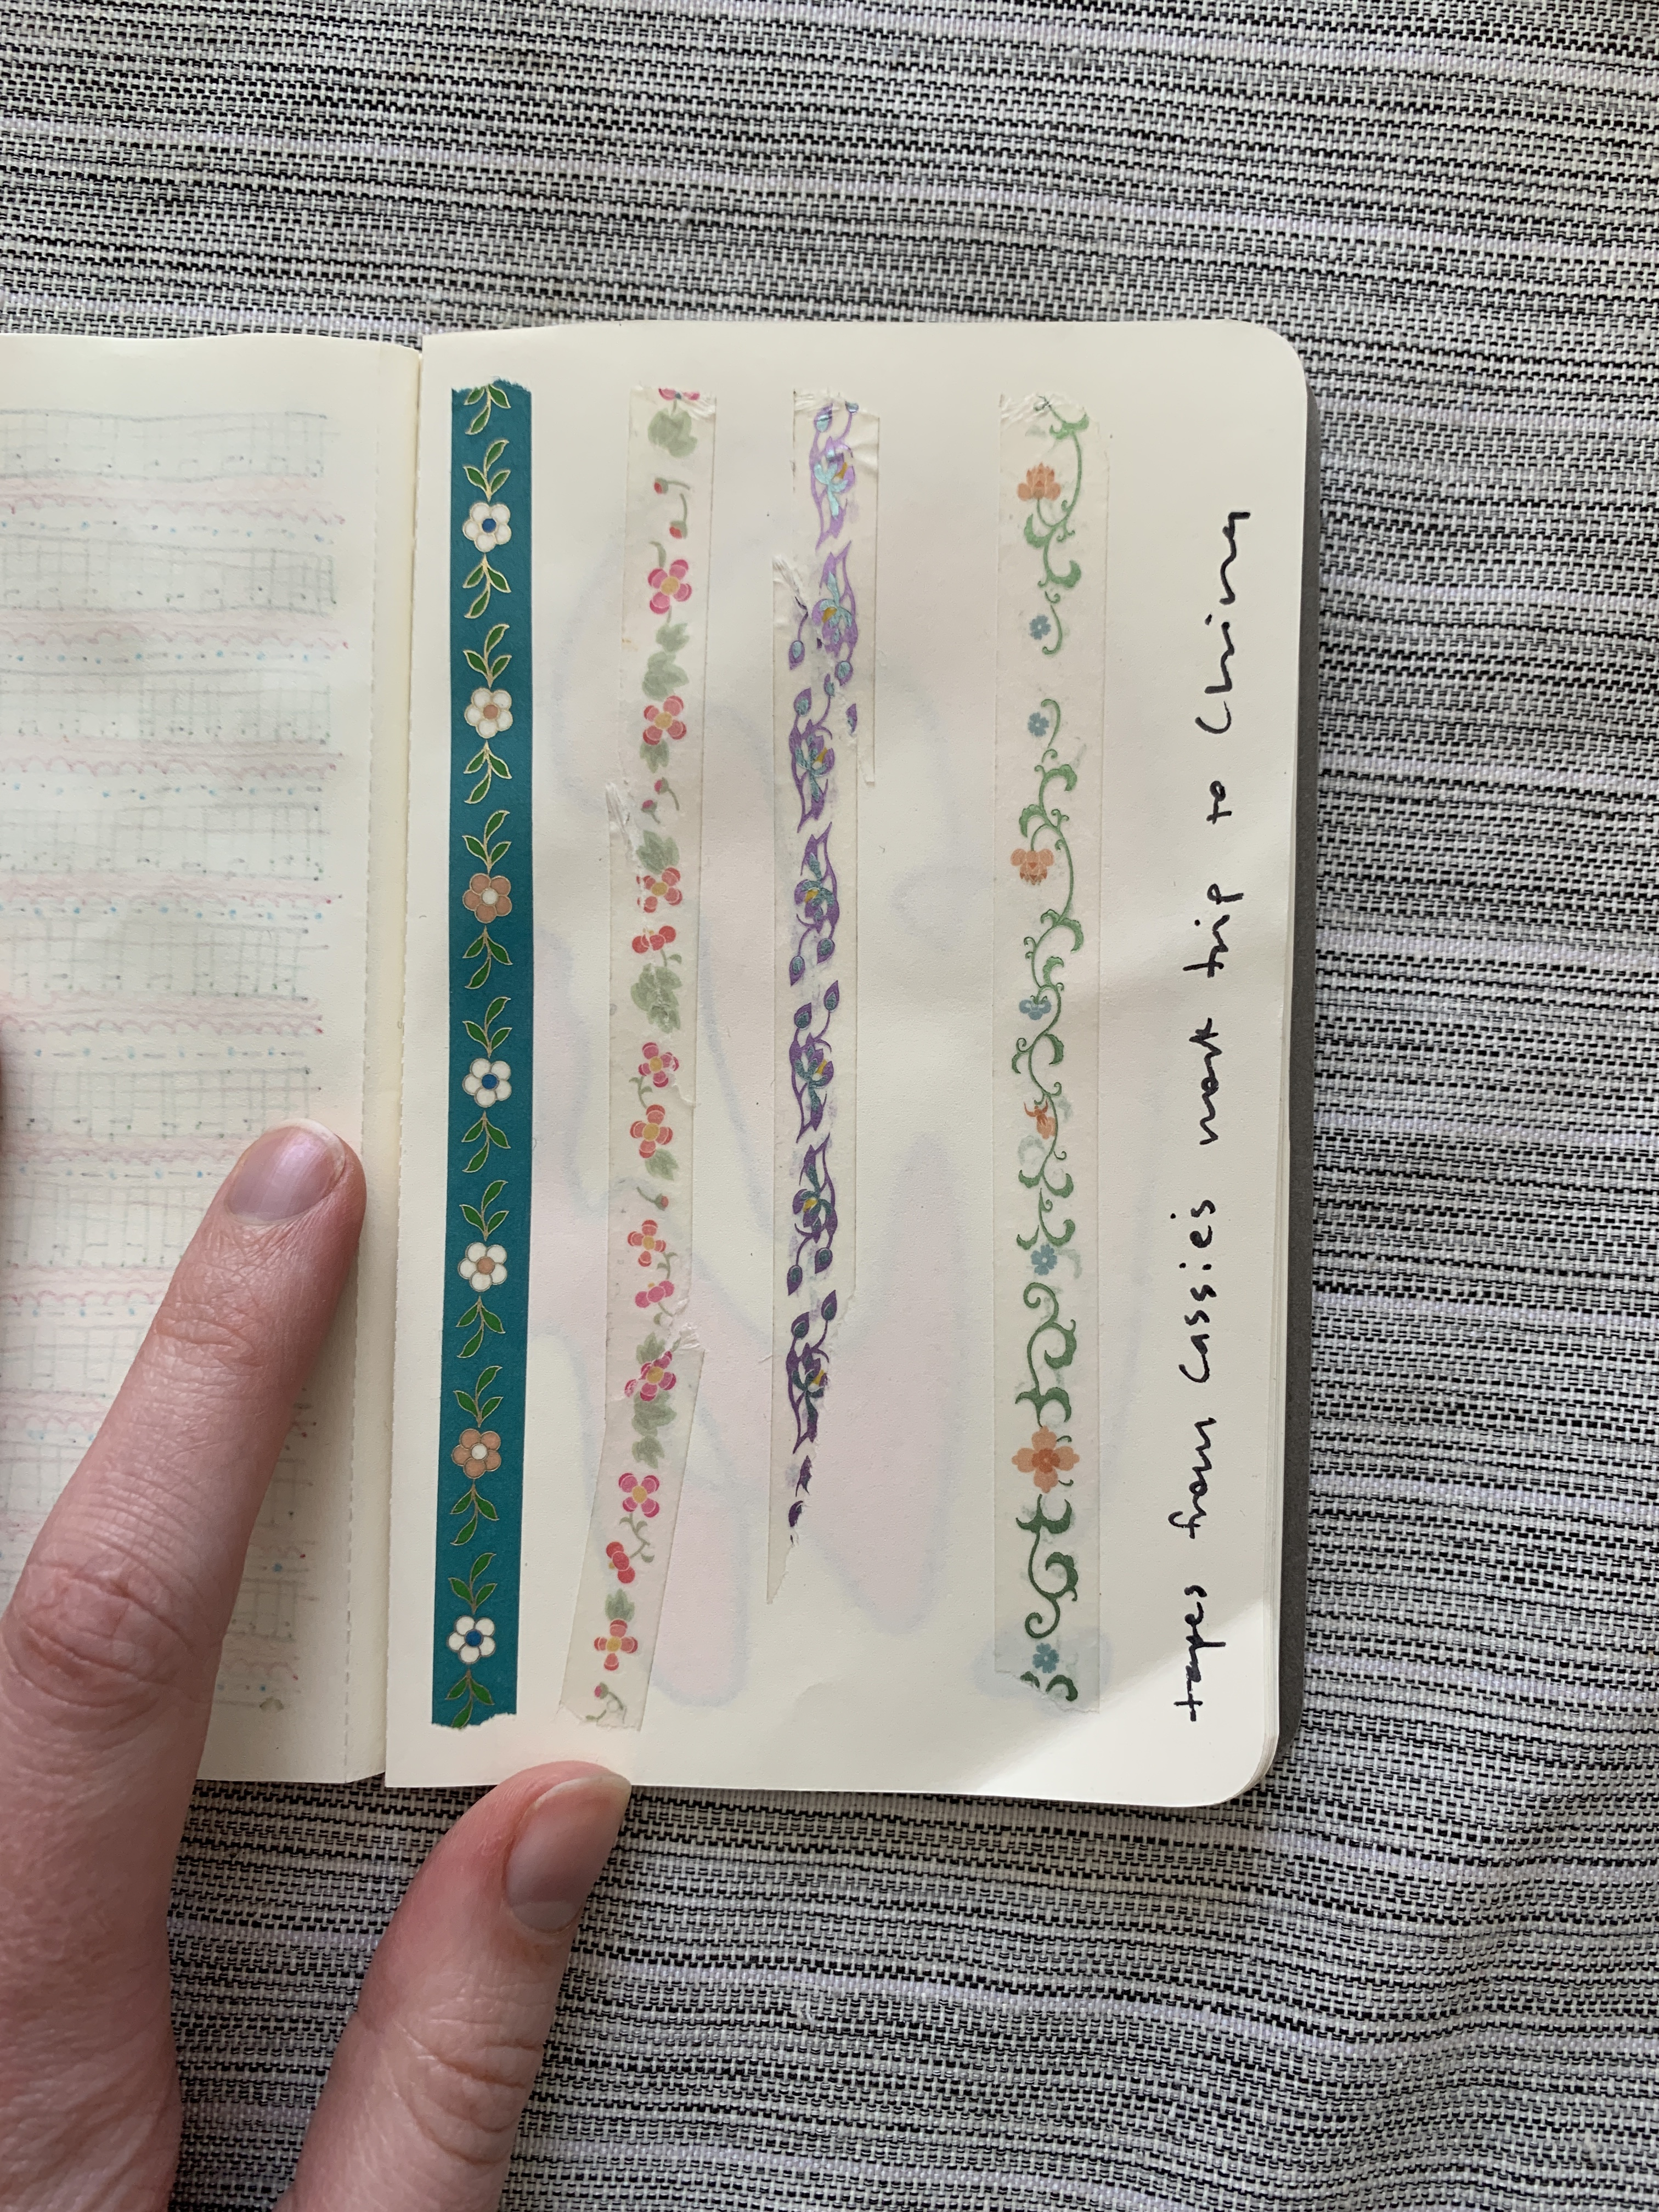 tapes from Cassies work trip to China